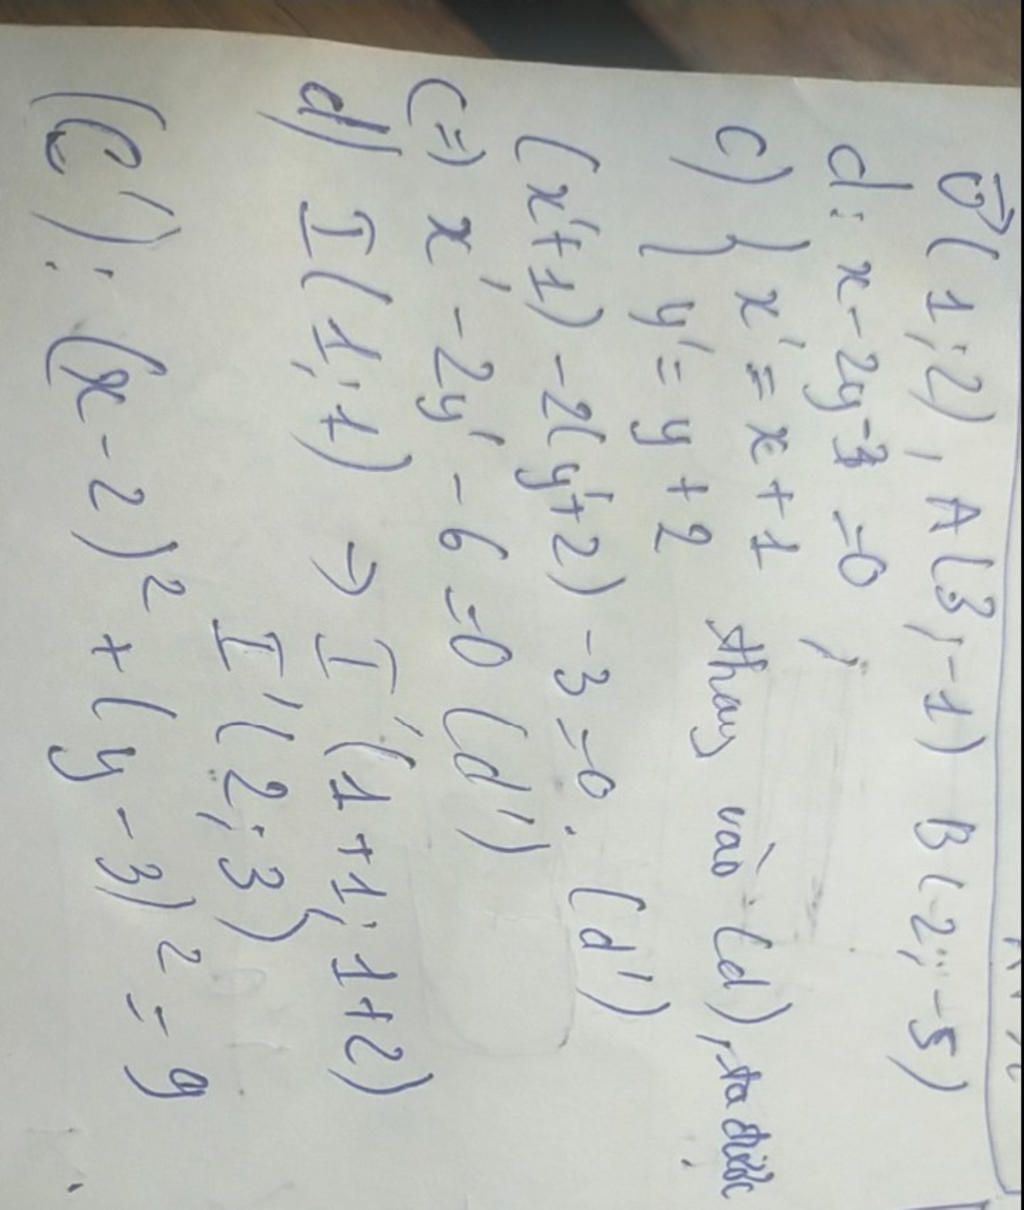 v⃗(1;2), A(3;-1) B(-2;-5)
d: x-2y-3=0 ;
c) { x'=x+1
{ y'=y+2 thay vào (d), ta được
(x'+1) -2(y'+2) -3=0. (d')
(=) x' -2y' -6=0 (d')
d) I(1;1) → I'(1+1;1+2)
I'(2;3)
(C'): (x-2)² + (y-3)² = 9